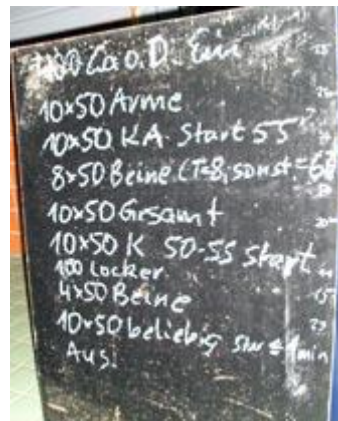 400 La o.D. Ein
10x50 Arme
10x50 KA. Start 55"
8x50 Beine (T=8, sonst=6)
10x50 Gesamt
10x50 K 50-55 Start
100 Locker
4x50 Beine
10x50 beliebig 1min
Aus.